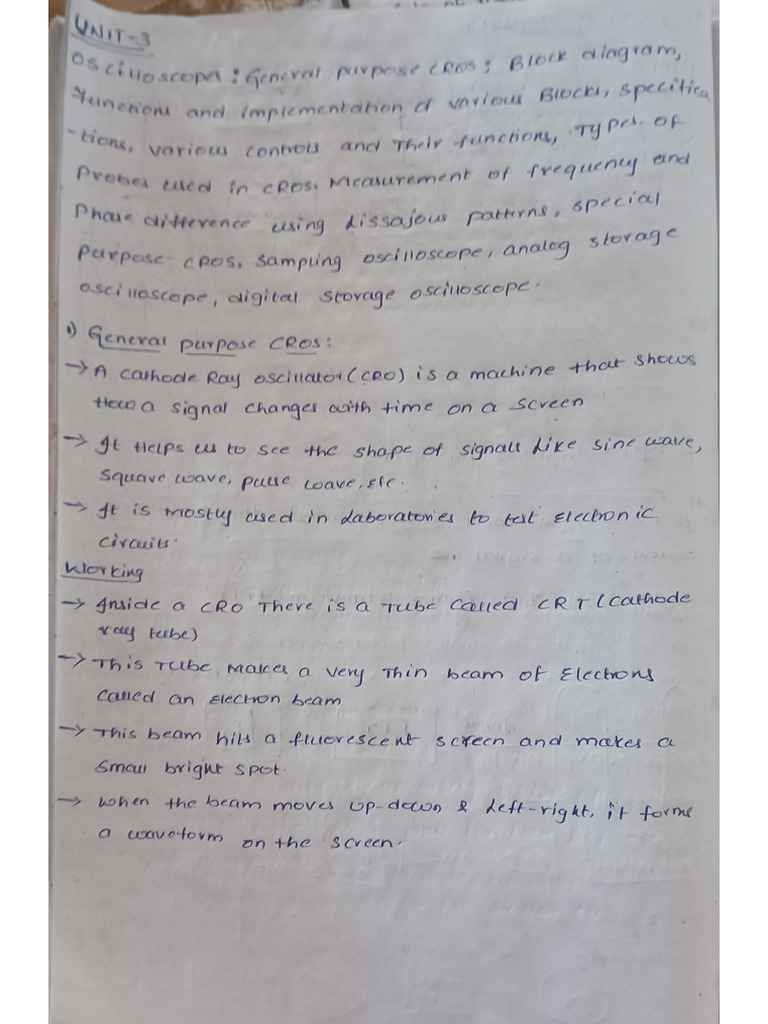 UNIT-3
Oscilloscopes: General purpose CROs; Block diagram,
functions and implementation of various Blocks, specifica
-tions, various controls and their functions, Types of
Probes used in CROs. Measurement of frequency and
Phase difference using Lissajous patterns, special
Purpose CROs, sampling oscilloscope, analog storage
oscilloscope, digital storage oscilloscope.
1) General purpose CROs:
→ A Cathode Ray oscillator (CRO) is a machine that shows
How a signal changes with time on a screen
→ It Helps us to see the shape of signals Like sine wave,
square wave, pulse wave, etc.
→ It is mostly used in Laboratories to test Electronic
circuits.
Working
→ Inside a CRO There is a Tube called CRT (Cathode
ray tube)
→ This Tube Makes a very Thin beam of Electrons
called an Electron beam
→ This beam hits a fluorescent screen and makes a
small bright spot.
→ when the beam moves up-down & Left-right, it forms
a waveform on the screen.